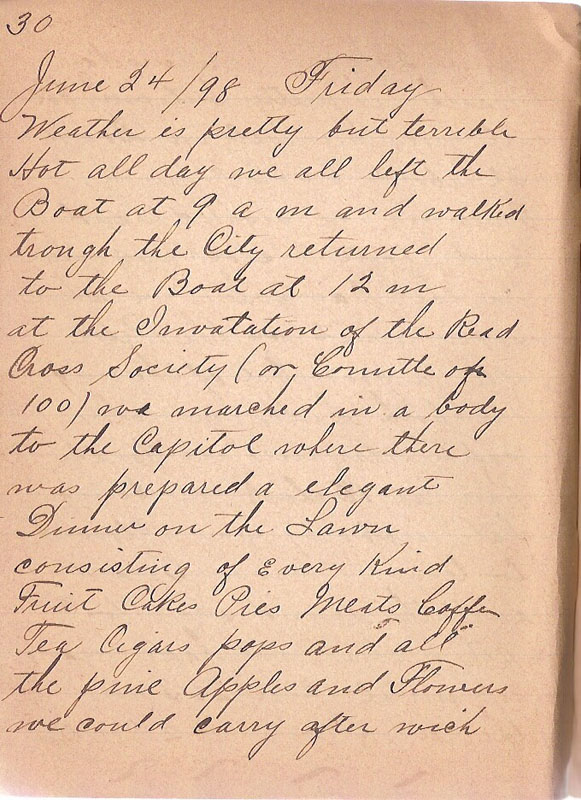 30
June 24/98 Friday
Weather is pretty but terrible
Hot all day we all left the
Boat at 9 a m and walked
trough the City returned
to the Boat at 12 m
at the Invatation of the Read
Cross Society (or Comitte of
100) we marched in a body
to the Capitol where there
was prepared a elegant
Dinner on the Lawn
consisting of Every Kind
Fruit Cakes Pies Meats Coffe
Tea Cigars pops and all
the pine Apples and Flowers
we could carry after wich